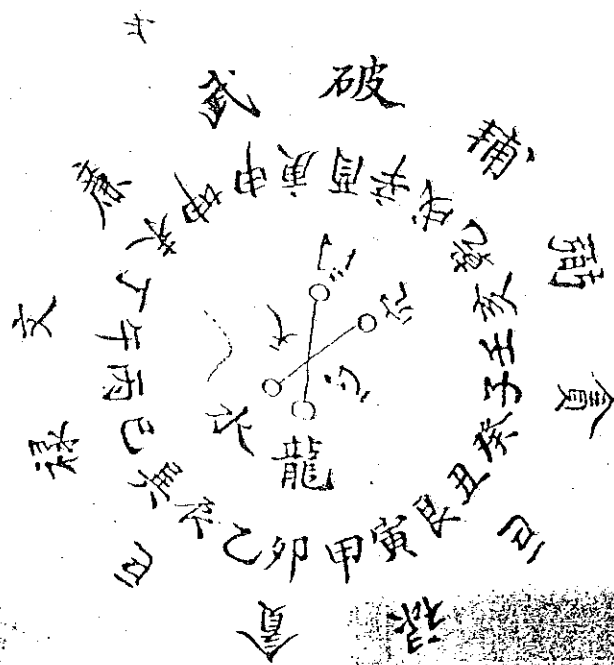 破輔弼貪巨祿貪巨祿文廉武
壬子癸丑艮寅甲卯乙辰巽巳丙午丁未坤申庚酉辛戌乾亥
穴
水
龍